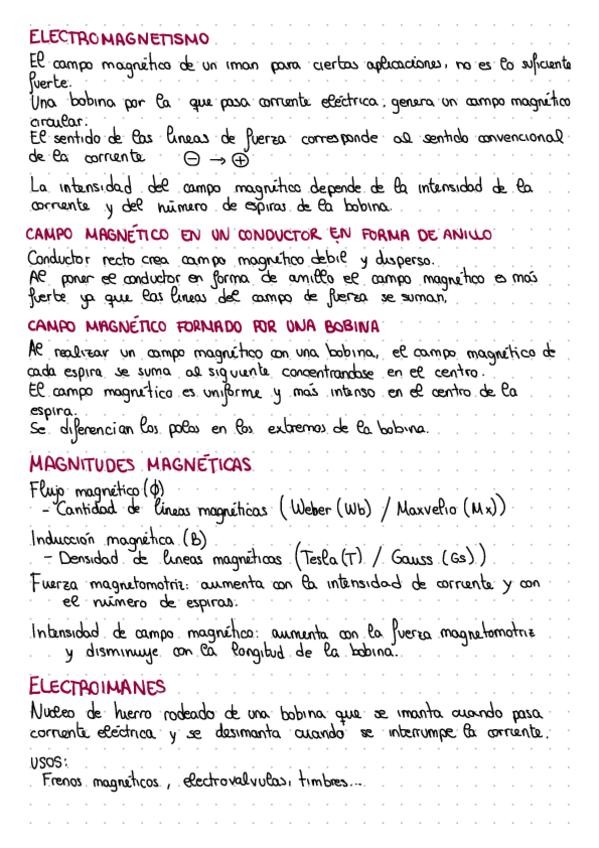 ELECTROMAGNETISMO
El campo magnético de un iman para ciertas aplicaciones, no es lo suficiente
fuerte.
Una bobina por la que pasa corriente eléctrica, genera un campo magnético
circular.
El sentido de las lineas de fuerza corresponde al sentido convencional
de la corriente ⊖ → ⊕
La intensidad del campo magnético depende de la intensidad de la
corriente y del número de espiras de la bobina.
CAMPO MAGNÉTICO EN UN CONDUCTOR EN FORMA DE ANILLO
Conductor recto crea campo magnético debil y disperso.
Al poner el conductor en forma de anillo el campo magnético es más
fuerte ya que las lineas del campo de fuerza se suman.
CAMPO MAGNÉTICO FORMADO POR UNA BOBINA
Al realizar un campo magnético con una bobina, el campo magnético de
cada espira se suma al siguiente concentrandose en el centro.
El campo magnético es uniforme y más intenso en el centro de la
espira.
Se diferencian los polos en los extremos de la bobina.
MAGNITUDES MAGNÉTICAS
Flujo magnético (ϕ)
- Cantidad de líneas magnéticas (Weber (Wb) / Maxvelio (Mx))
Inducción magnética (B)
- Densidad de lineas magnéticas (Tesla (T) / Gauss (Gs))
Fuerza magnetomotriz: aumenta con la intensidad de corriente y con
el número de espiras.
Intensidad de campo magnético: aumenta con la fuerza magnetomotriz
y disminuye con la longitud de la bobina.
ELECTROIMANES
Nucleo de hierro rodeado de una bobina que se imanta cuando pasa
corriente eléctrica y se desimanta cuando se interrumpe la corriente.
USOS:
Frenos magnéticos, electrovalvulas, timbres...